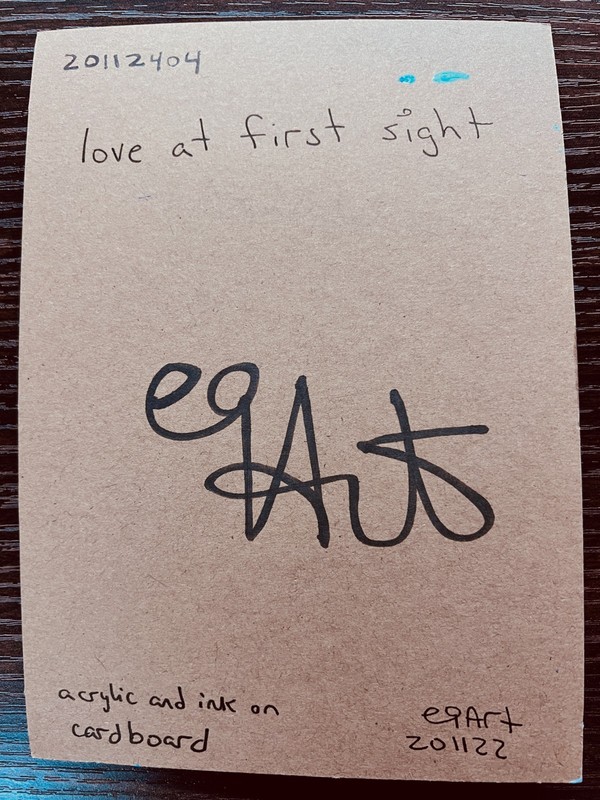 20112404
love at first sight
eqArt
acrylic and ink on
cardboard
eqArt
201122